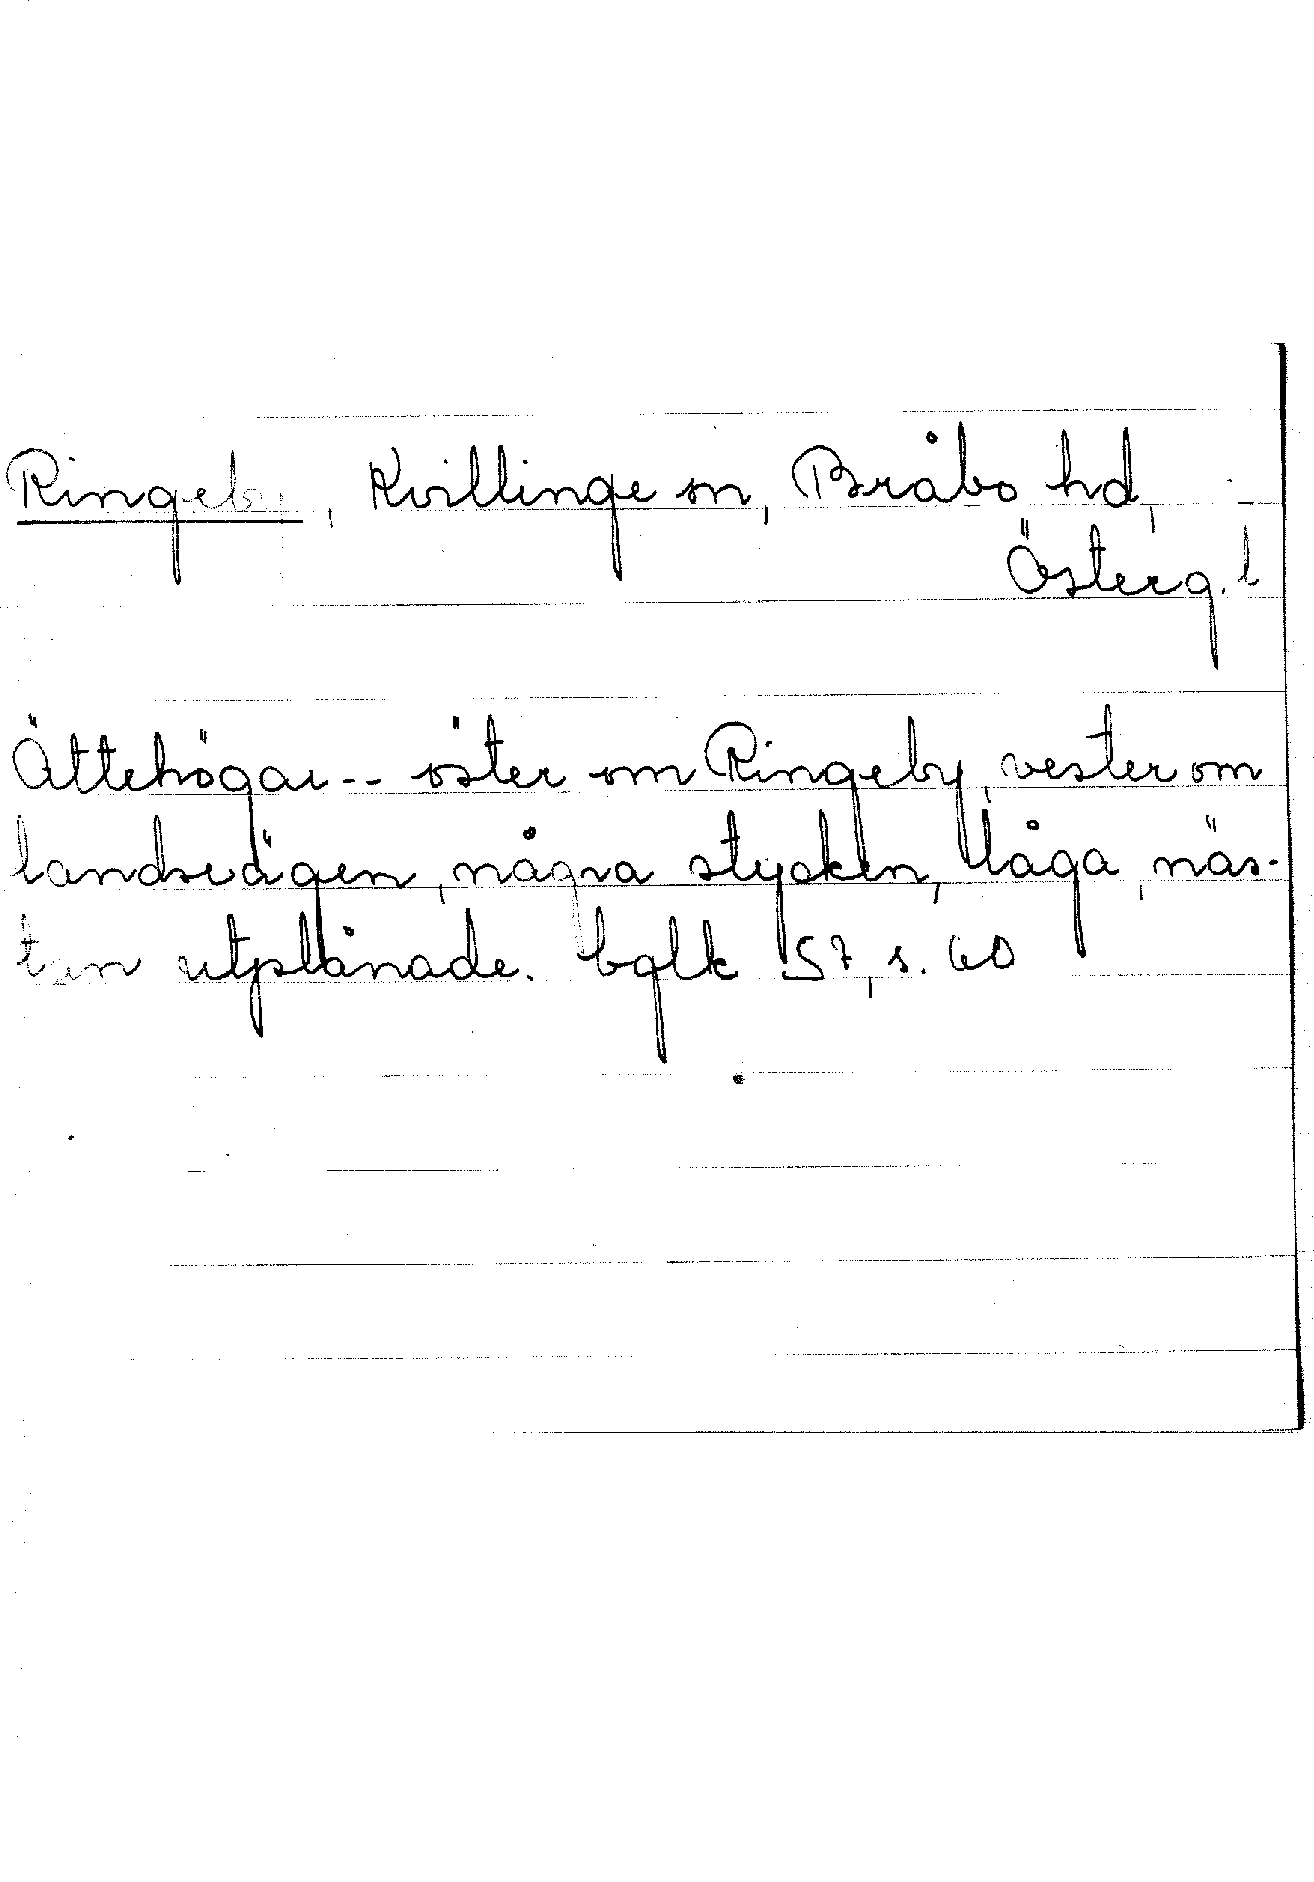 Ringeby, Kvillinge sn, Bråbo hd,
Österg. l
Ättehögar -- öster om Ringeby, vester om
landsvägen, några stycken, låga, näs-
tan utplånade. bglk 57, s. 60